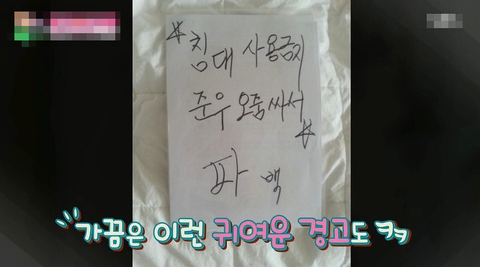 ☆침대 사용금지
준우 오줌싸서☆
파백
"가끔은 이런 귀여운 경고도 ㅋㅋ